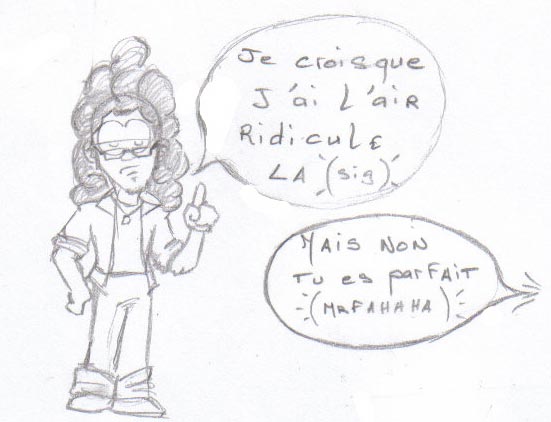 Je croisque
J'ai L'air
Ridicule
LA (sig)
Mais NON
Tu es parFAiT
(MRFAHAHA)